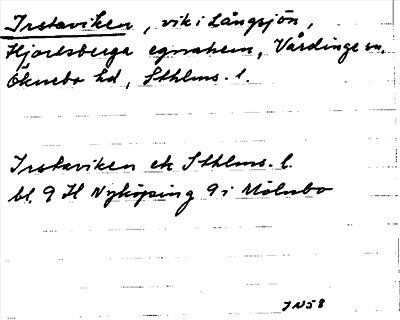 Irstaviken, vik i Långsjön,
Hjortsberga egnahem, Vårdinge sn,
Öknebo hd, Sthlms. l.
Irstaviken ek Sthlms. l.
bl. 9 H Nyköping 9 i Mölnbo
JN58